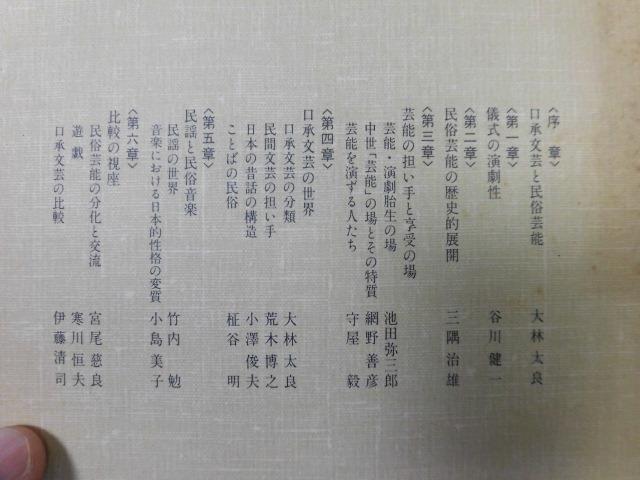 〈序　章〉
口承文芸と民俗芸能　大林太良
〈第一章〉
儀式の演劇性　谷川健一
〈第二章〉
民俗芸能の歴史的展開　三隅治雄
〈第三章〉
芸能の担い手と享受の場
芸能・演劇胎生の場　池田弥三郎
中世「芸能」の場とその特質　網野善彦
芸能を演ずる人たち　守屋　毅
〈第四章〉
口承文芸の世界
口承文芸の分類　大林太良
民間文芸の担い手　荒木博之
日本の昔話の構造　小澤俊夫
ことばの民俗　柾谷　明
〈第五章〉
民謡と民俗音楽
民謡の世界　竹内　勉
音楽における日本的性格の変質　小島美子
〈第六章〉
比較の視座
民俗芸能の分化と交流　宮尾慈良
遊戯　寒川恒夫
口承文芸の比較　伊藤清司